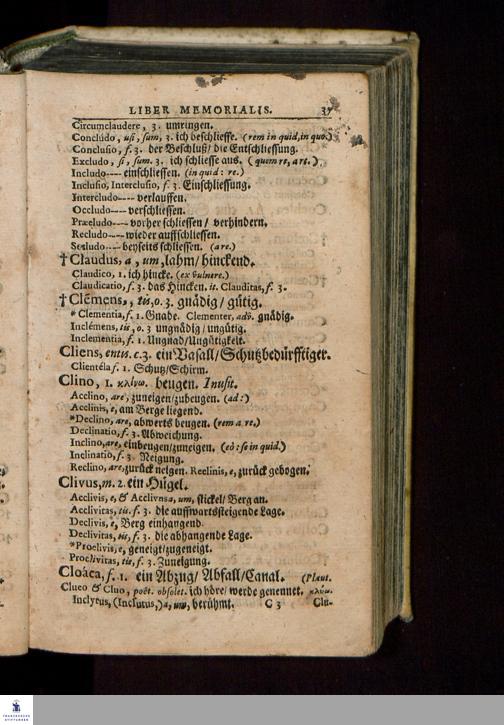 LIBER MEMORIALIS. 37
Circumclaudere, 3. umringen.
Conclúdo, usi, sum, 3. ich beschliesse. (rem in quid, in quo.)
Conclusio, f. 3. der Beschluß/ die Entschliessung.
Excludo, si, sum. 3. ich schliesse aus. (quem re, a re.)
Includo---- einschliessen. (in quid: re.)
Inclusio, Interclusio, f. 3. Einschliessung.
Intercludo---- verlauffen.
Occludo---- verschliessen.
Præcludo---- vorher schliessen/ verhindern.
Recludo---- wieder auffschliessen.
Secludo---- beyseits schliessen. (a re.)
†Claudus, a, um, lahm/ hinckend.
Claudico, 1. ich hincke. (ex vulnere.)
Claudicatio, f. 3. das Hincken. it. Clauditas, f. 3.
†Clēmens, tis, o. 3. gnädig/ gütig.
*Clementia, f. 1. Gnade. Clementer, adv. gnädig.
Inclémens, tis, o. 3 ungnädig/ ungütig.
Inclementia, f. 1. Ungnad/ Ungütigkeit.
Cliens, entis. c. 3. ein Vasall/ Schutzbedürfftiger.
Clientéla f. 1. Schutz/ Schirm.
Clino, 1. κλίνω. beugen. Inusit.
Acclino, are, zuneigen/ zubeugen. (ad:)
Acclinis, e, am Berge liegend.
*Declino, are, abwerts beugen. (rem a re.)
Declinatio, f. 3. Abweichung.
Inclino, are, einbeugen/ zuneigen. (eò: se in quid.)
Inclinatio, f. 3. Neigung.
Reclino, are, zurück neigen. Reclinis, e, zurück gebogen.
Clivus, m. 2. ein Hügel.
Acclivis, e, & Acclivus a, um, stickel/ Berg an.
Acclivitas, tis. f. 3. die auffwartssteigende Lage.
Declivis, e, Berg einhangend.
Declivitas, tis, f. 3. die abhangende Lage.
*Proclivis, e, geneigt/ zugeneigt.
Proclivitas, tis, f. 3. Zuneigung.
Cloáca, f. 1. ein Abzug/ Abfall/ Canal. (Plaut.
Clueo & Cluo, poët. obsolet. ich höre/ werde genennet. κλύω.
Inclytus, (Inclutus,) a, um, berühmt. C 3 Clu-
FRANCKESCHE STIFTUNGEN